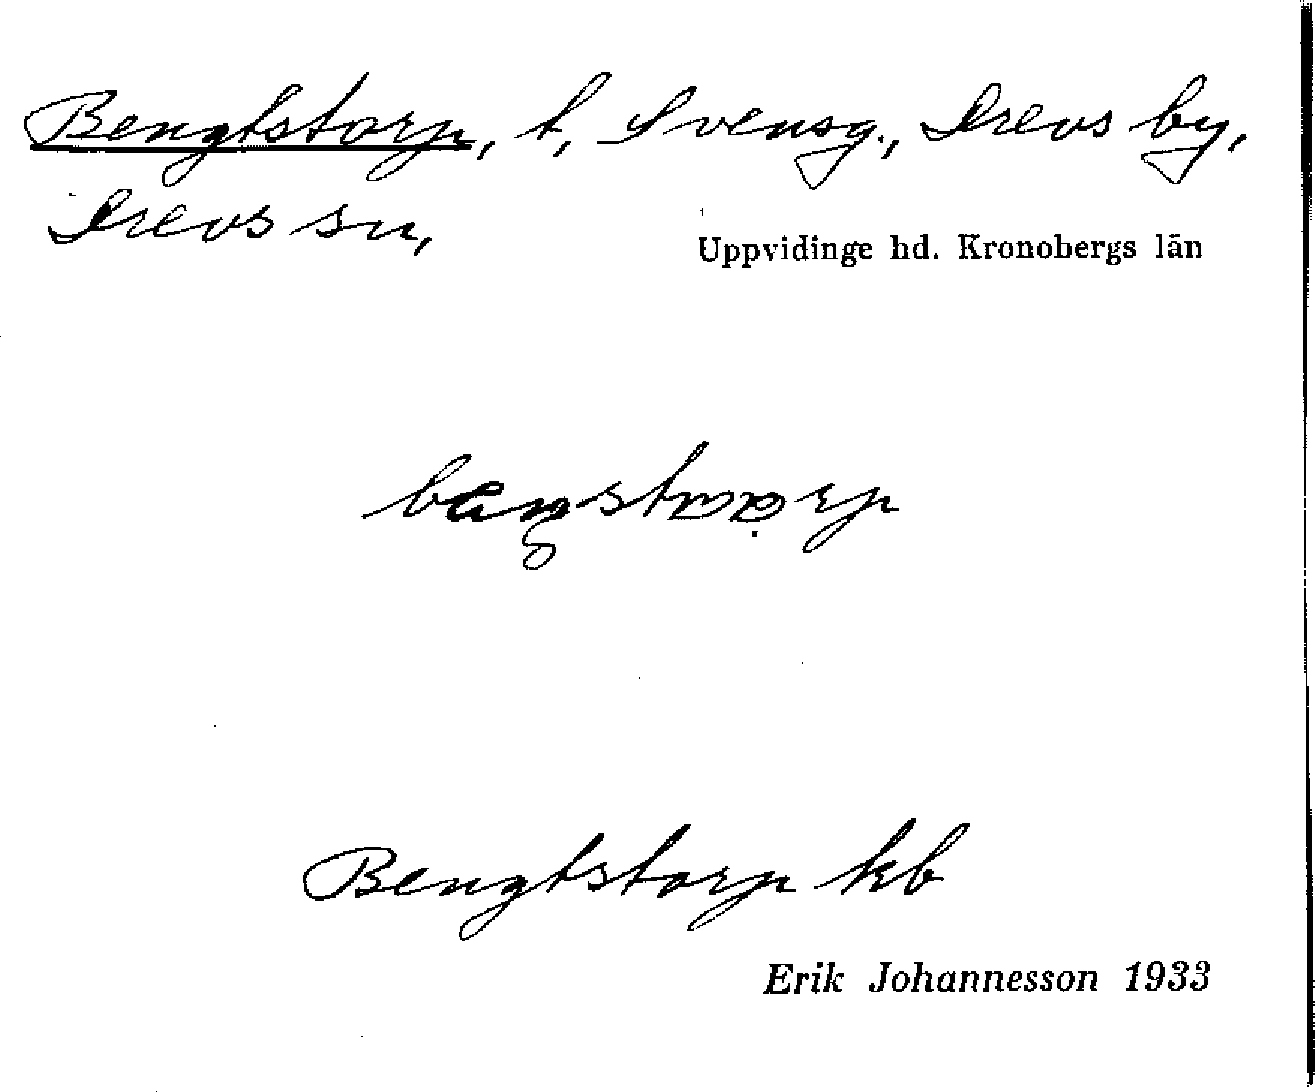 Bengtstorp, t, Svensg., Drevs by,
Drevs sn,
Uppvidinge hd. Kronobergs län
Bengtstorp kb
Erik Johannesson 1933